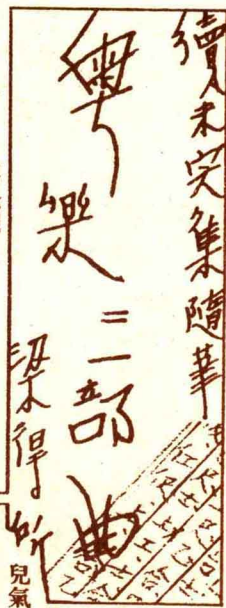 續未完集隨筆
粵樂二部曲
梁得所
兒氣